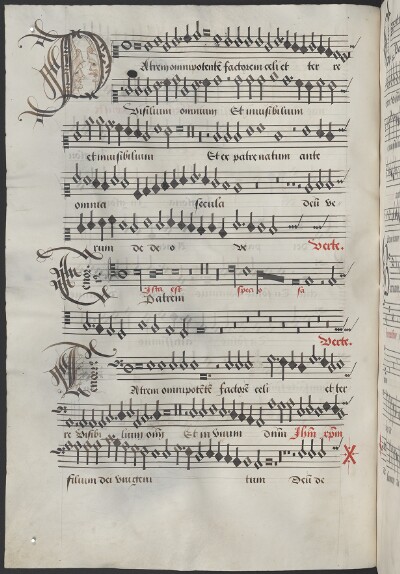 Atrem omnipotentē factorem celi et ter re
Visilium omnium Et inuisibilium
et inuisibilium Et ex patre natum ante
omnia secula deū ve
rum de de o ve Verte.
Tenor
Ista est speci o sa
Patrem
Verte.
Tenor
Atrem omnipotētē factorē celi et ter
re Visibi lium om̄ Et in unum dnm̄ Jhm̄ xpm̄
filium dei vnigeni tum Deū de